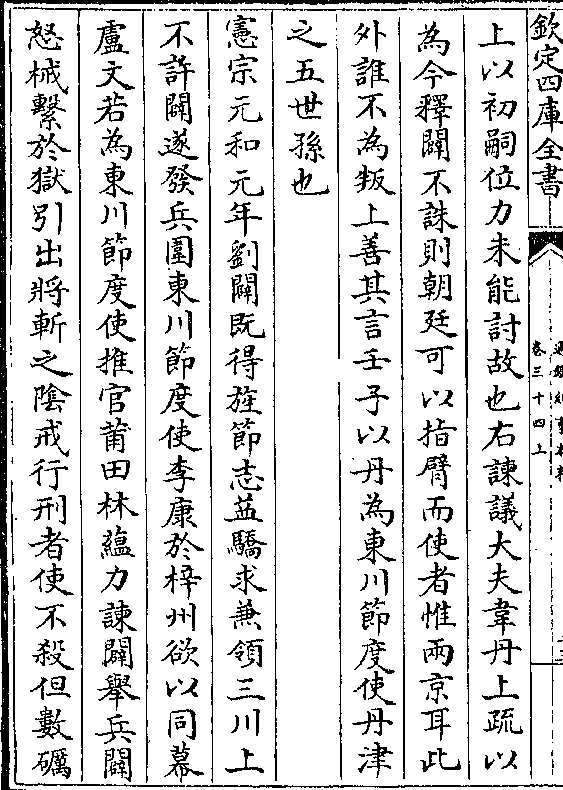 欽定四庫全書
卷三十四上
上以初嗣位力未能討故也右諫議大夫韋丹上疏以
為今釋闢不誅則朝廷可以指臂而使者惟兩京耳此
外誰不為叛上善其言壬子以丹為東川節度使丹津
之五世孫也
憲宗元和元年劉闢既得旌節志益驕求兼領三川上
不許闢遂發兵圍東川節度使李康於梓州欲以同幕
盧文若為東川節度使推官莆田林蘊力諫闢舉兵闢
怒械繫於獄引出將斬之陰戒行刑者使不殺但數礪